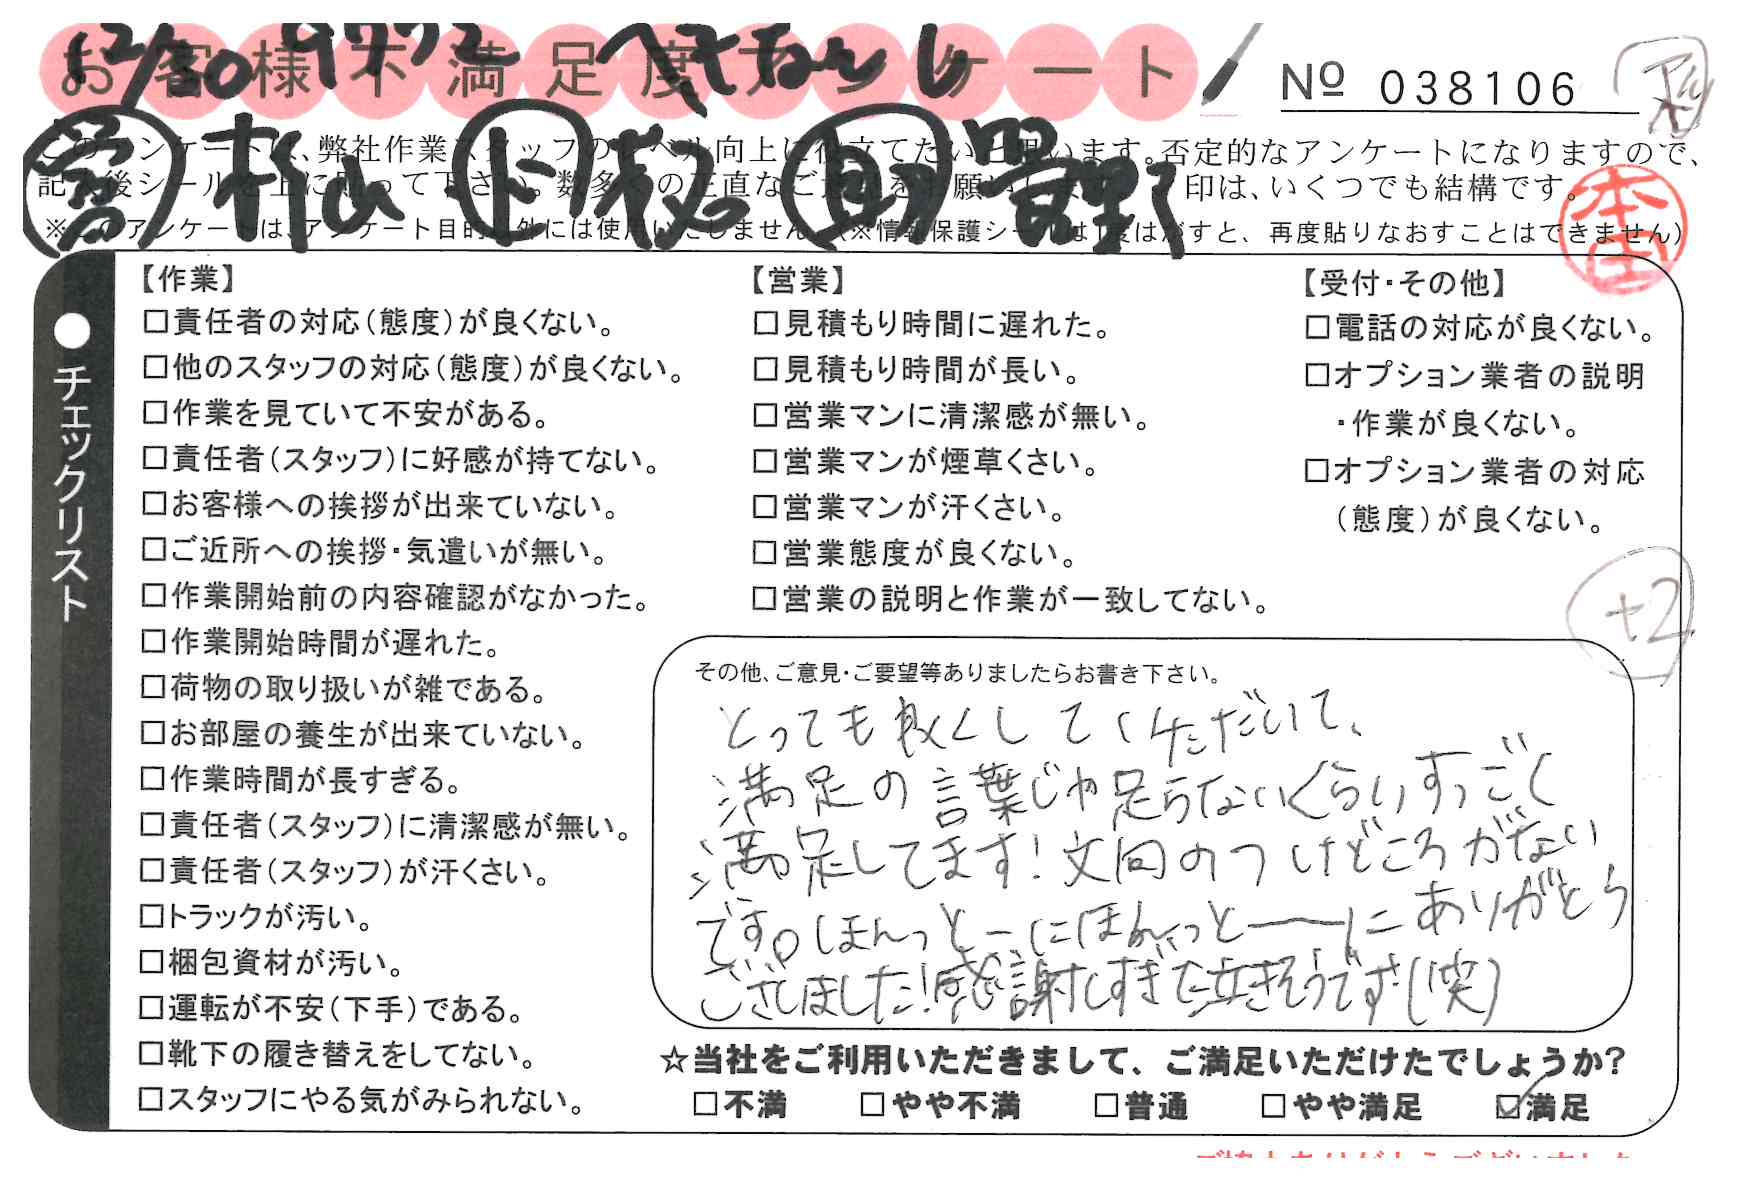 お客様不満足度アンケート
12/30
№ 038106
このアンケートは、弊社作業スタッフのレベル向上に役立てたいと思います。否定的なアンケートになりますので、
記入後シールを上に貼って下さい。数多くの正直なご意見をお願いします。 印は、いくつでも結構です。
※このアンケートは、アンケート目的以外には使用いたしません。(※情報保護シールは1度はがすと、再度貼りなおすことはできません)
営 杉山
本田
チェックリスト
【作業】
□責任者の対応(態度)が良くない。
□他のスタッフの対応(態度)が良くない。
□作業を見ていて不安がある。
□責任者(スタッフ)に好感が持てない。
□お客様への挨拶が出来ていない。
□ご近所への挨拶・気遣いが無い。
□作業開始前の内容確認がなかった。
□作業開始時間が遅れた。
□荷物の取り扱いが雑である。
□お部屋の養生が出来ていない。
□作業時間が長すぎる。
□責任者(スタッフ)に清潔感が無い。
□責任者(スタッフ)が汗くさい。
□トラックが汚い。
□梱包資材が汚い。
□運転が不安(下手)である。
□靴下の履き替えをしてない。
□スタッフにやる気がみられない。
【営業】
□見積もり時間に遅れた。
□見積もり時間が長い。
□営業マンに清潔感が無い。
□営業マンが煙草くさい。
□営業マンが汗くさい。
□営業態度が良くない。
□営業の説明と作業が一致してない。
【受付・その他】
□電話の対応が良くない。
□オプション業者の説明
・作業が良くない。
□オプション業者の対応
(態度)が良くない。
+2
その他、ご意見・ご要望等ありましたらお書き下さい。
とっても良くしていただいて、
満足の言葉じゃ足らないくらいすっごく
満足してます!文向のつけどころがない
です。ほんっとーにほんっとーーにありがとう
ございました!感謝しすぎて泣きそうです(笑)
☆当社をご利用いただきまして、ご満足いただけたでしょうか?
□不満 □やや不満 □普通 □やや満足 ☑満足
ご協力ありがとうございました